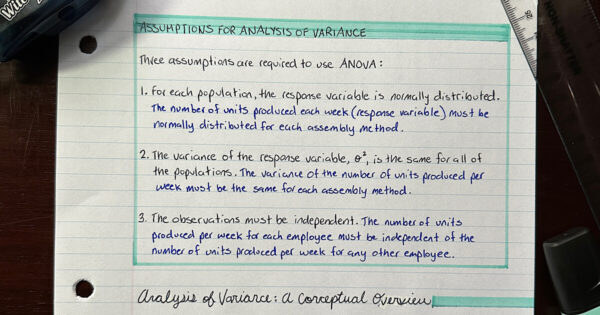 ASSUMPTIONS FOR ANALYSIS OF VARIANCE
Three assumptions are required to use ANOVA:
1. For each population, the response variable is normally distributed.
The number of units produced each week (response variable) must be
normally distributed for each assembly method.
2. The variance of the response variable, σ², is the same for all of
the populations. The variance of the number of units produced per
week must be the same for each assembly method.
3. The observations must be independent. The number of units
produced per week for each employee must be independent of the
number of units produced per week for any other employee.
Analysis of Variance: A Conceptual Overview